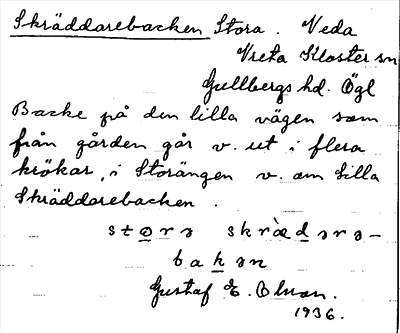 Skräddarebacken Stora. Veda
Vreta Kloster sn
Gullbergs hd. Ögl
Backe på den lilla vägen som
från gården går v. ut i flera
krökar, i Storängen v. om Lilla
Skräddarebacken.
stọrə skrædərə-
bakən
Gustaf E. Olson.
1936.